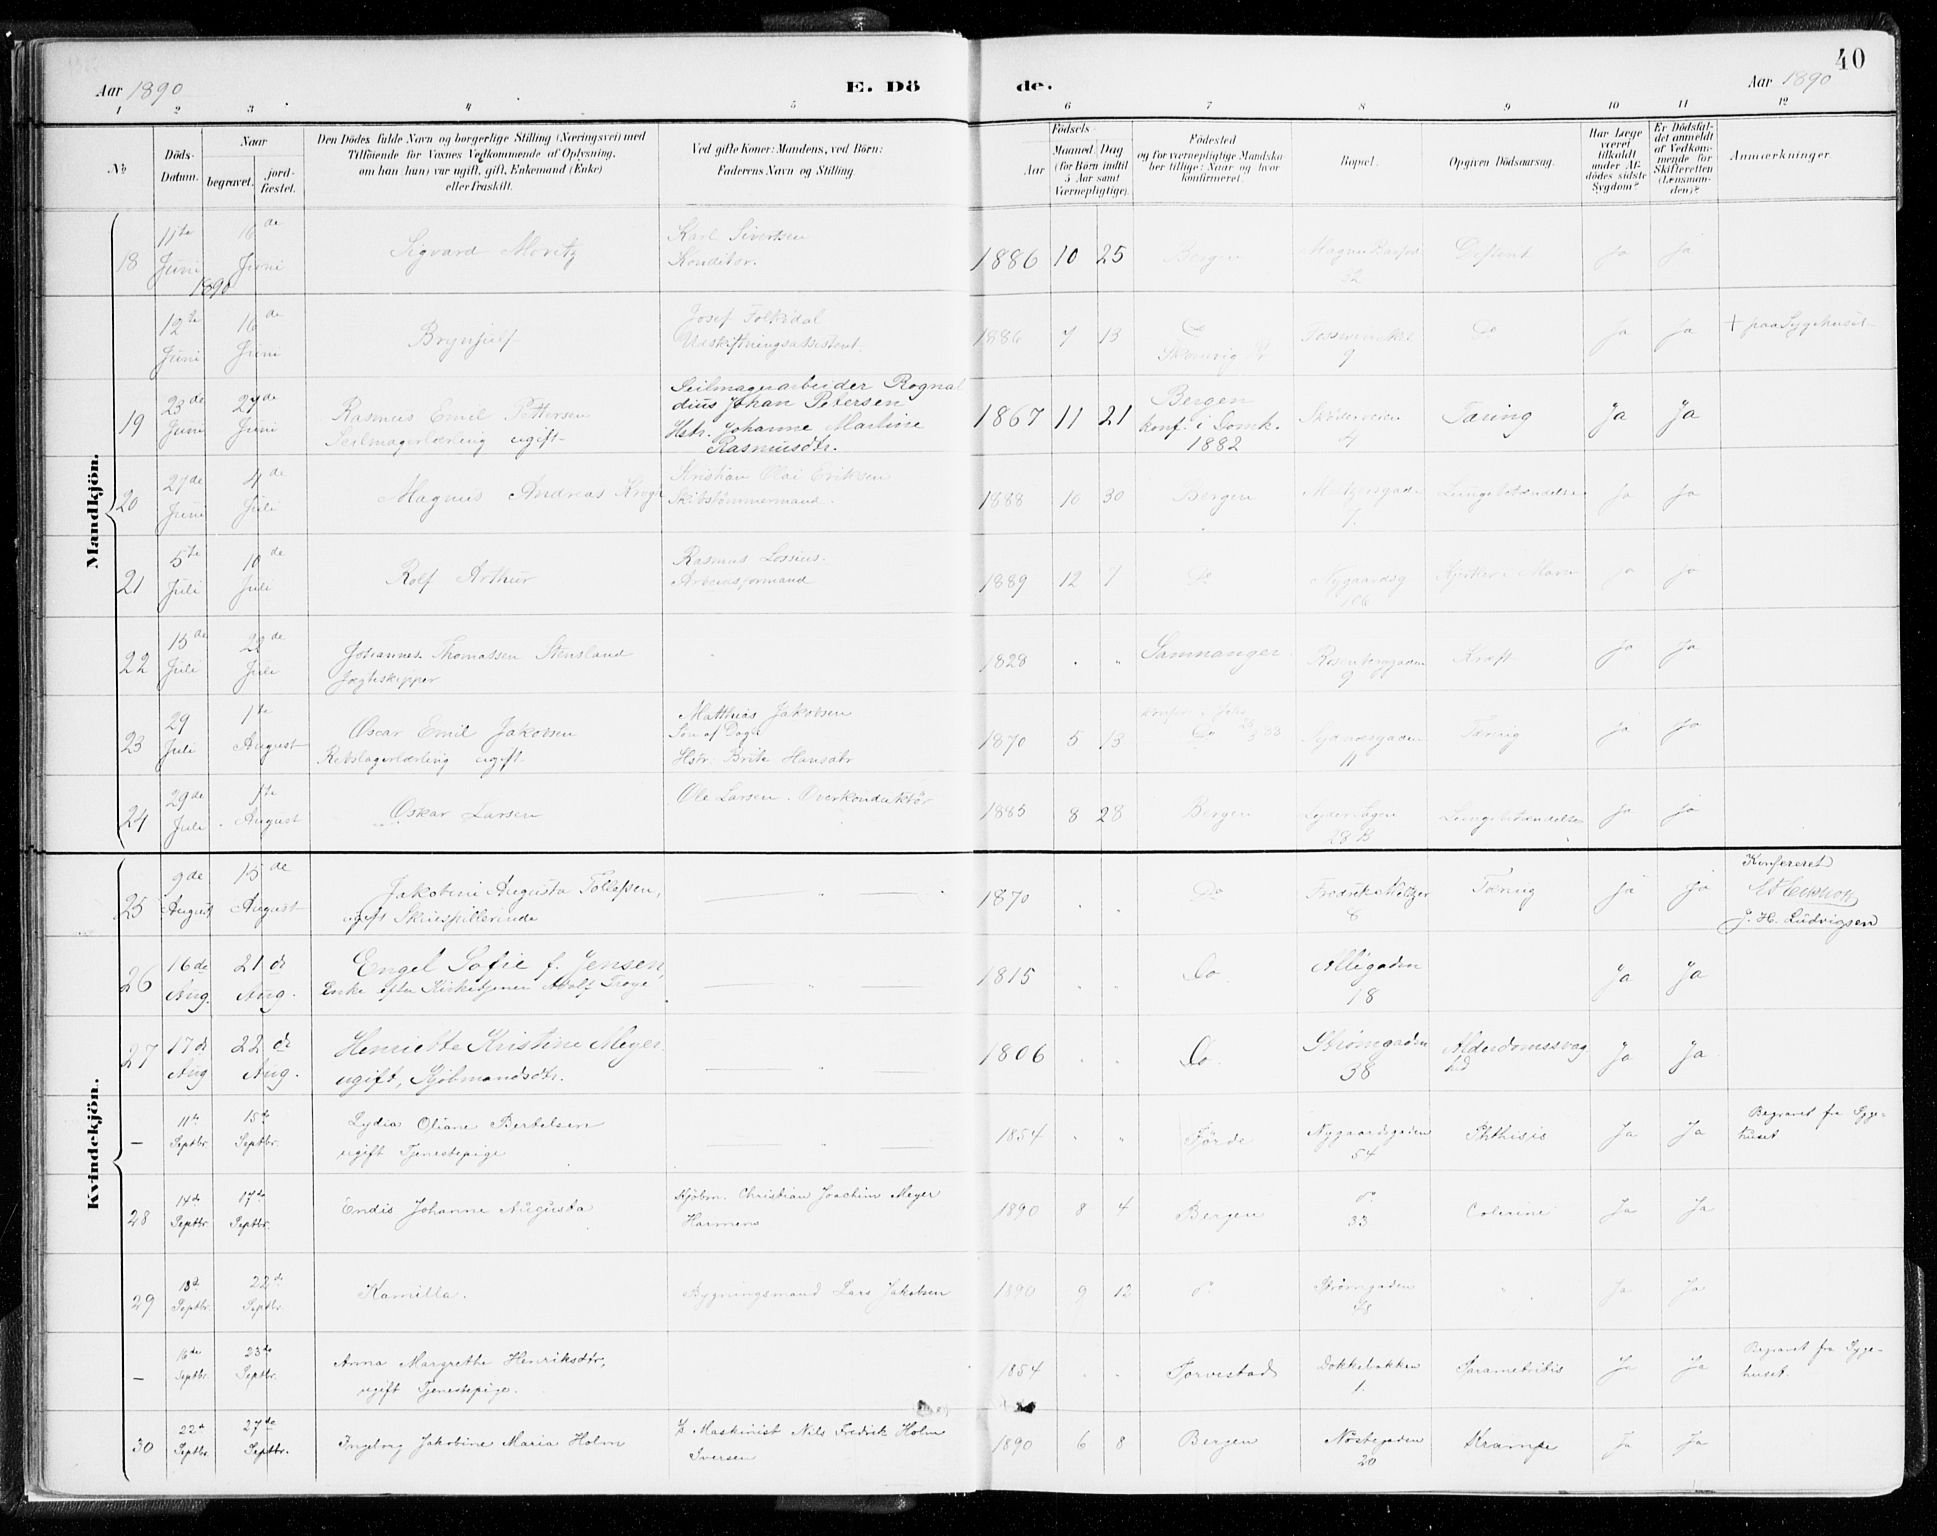 40
Aar 1890
E. Dö
de.
Aar 1890
1 2 3 4 5 6 7 8 9 10 11 12
№
Döds-Datum.
Naar
begravet.
jord-fæstet.
Den Dödes fulde Navn og borgerlige Stilling (Næringsvei) med
Tilföiende for Voxnes Vedkommende af Oplysning,
om han (hun) var ugift, gift, Enkemand (Enke)
eller fraskilt.
Ved gifte Koner: Mandens, ved Börn:
Faderens Navn og Stilling.
Födsels-
Aar
Maaned. Dag
(for Börn indtil
5 Aar samt
Værnepligtige).
Födested
og for værnepligtige Mandska-
ber tillige: Naar og hvor
konfirmeret.
Bopæl.
Opgiven Dödsaarsag.
Har Læge
været
tilkaldt
under Af-
dödes sidste
Sygdom?
Er Dödsfal-
det anmeldt
af Vedkom-
mende for
Skifteretten
(Lensman-
den)?
Anmærkninger
Mandkjön.
18 11te Juni 1890 16de Juni Sigvard Moritz Karl Sivertsen Konditor. 1886 10 25 Bergen 32 Difterit Ja Ja
12te Juni 16de Juni Brynjulf Josef Folkedal Udskiftningsassistent 1886 7 13 Do 9 Do Ja Ja + paa Sygehuset
19 23de Juni 27de Juni Rasmus Emil Pettersen
Seilmagerlærling ugift
Seilmagerarbeider Rognal
dius Johan Petersen
Hstr. Johanne Martine
Rasmusdtr.
1867 11 21 Bergen konf. i Domk. 1882 4 Tæring Ja Ja
20 27de Juni 4de Juli Magnus Andreas Krogh Kristian Olai Eriksen Skibstømmermand. 1888 10 30 Bergen 7. Lungebetændelse Ja Ja
21 5te Juli 10de Juli Rolf Arthur Rasmus Lossius. Arbeidsformand 1889 12 7 Do Nygaardsg 106 Ja Ja
22 15de Juli 22de Juli Johannes Thomassen Stensland
Jægteskipper
1828 Samnanger Rosenberggaden 9 Kræft Ja Ja
23 29 Juli 1te August Oscar Emil Jakobsen
Rebslagerlærling ugift
Matthias Jakobsen
Søn af
Hstr. Brite Hansdtr
1870 5 13 Do Sydnæsgaden 11 Tæring Ja Ja
24 29de Juli 1te August Oskar Larsen Ole Larsen. Overkonduktør 1885 8 28 Bergen Lyder Sagen 28 B Lungebetændelse Ja Ja
Kvindekjön.
25 9de August 15de August Jakobine Augusta Tollefsen,
ugift Skuespillerinde
1870 Do Fredrik Meltzer 8 Tæring Ja Ja Konfereret
J. H. Ludvigsen
26 16de Aug. 21de Aug. Engel Sofie f. Jensen,
Enke efter Kirketjener Adolf Troye
1815 Do Allégaden 18 Ja Ja
27 17de Aug 22de Aug. Henriette Kristine Meyer.
ugift, Kjöbmandsdtr.
1806 Do. Strømgaden 38 Alderdomssvag
hed Ja Ja
– 11te Septbr. 15de Septbr. Lydia Oliane Bertelsen
ugift Tjenestepige
1854 Førde Nygaardsgaden 54 Phthisis Ja Ja Begravet fra Syge-
huset
28 14de Septbr. 17de Septbr. Endis Johanne Augusta Kjöbm. Christian Joachim Meyer
Harmens
1890 8 4 Bergen do 33 Colerine Ja Ja
29 18d Septbr. 22de Septbr. Kamilla. Bygningsmand Lars Jakobsen 1890 9 12 do Strømgaden 78 " Ja Ja
– 16de Septbr. 23de Septbr. Anna Margrethe Henriksdtr,
ugift Tjenestepige.
1854 Torvestad Dokkebakken 1. Parametritis Ja Ja Begravet fra Syge-
huset.
30 22d Septbr. 27de Septbr. Ingeborg Jakobine Maria Holm Maskinist Nils Fredrik Holm
Iversen
1890 6 8 Bergen Nøstegaden 20 Krampe Ja Ja